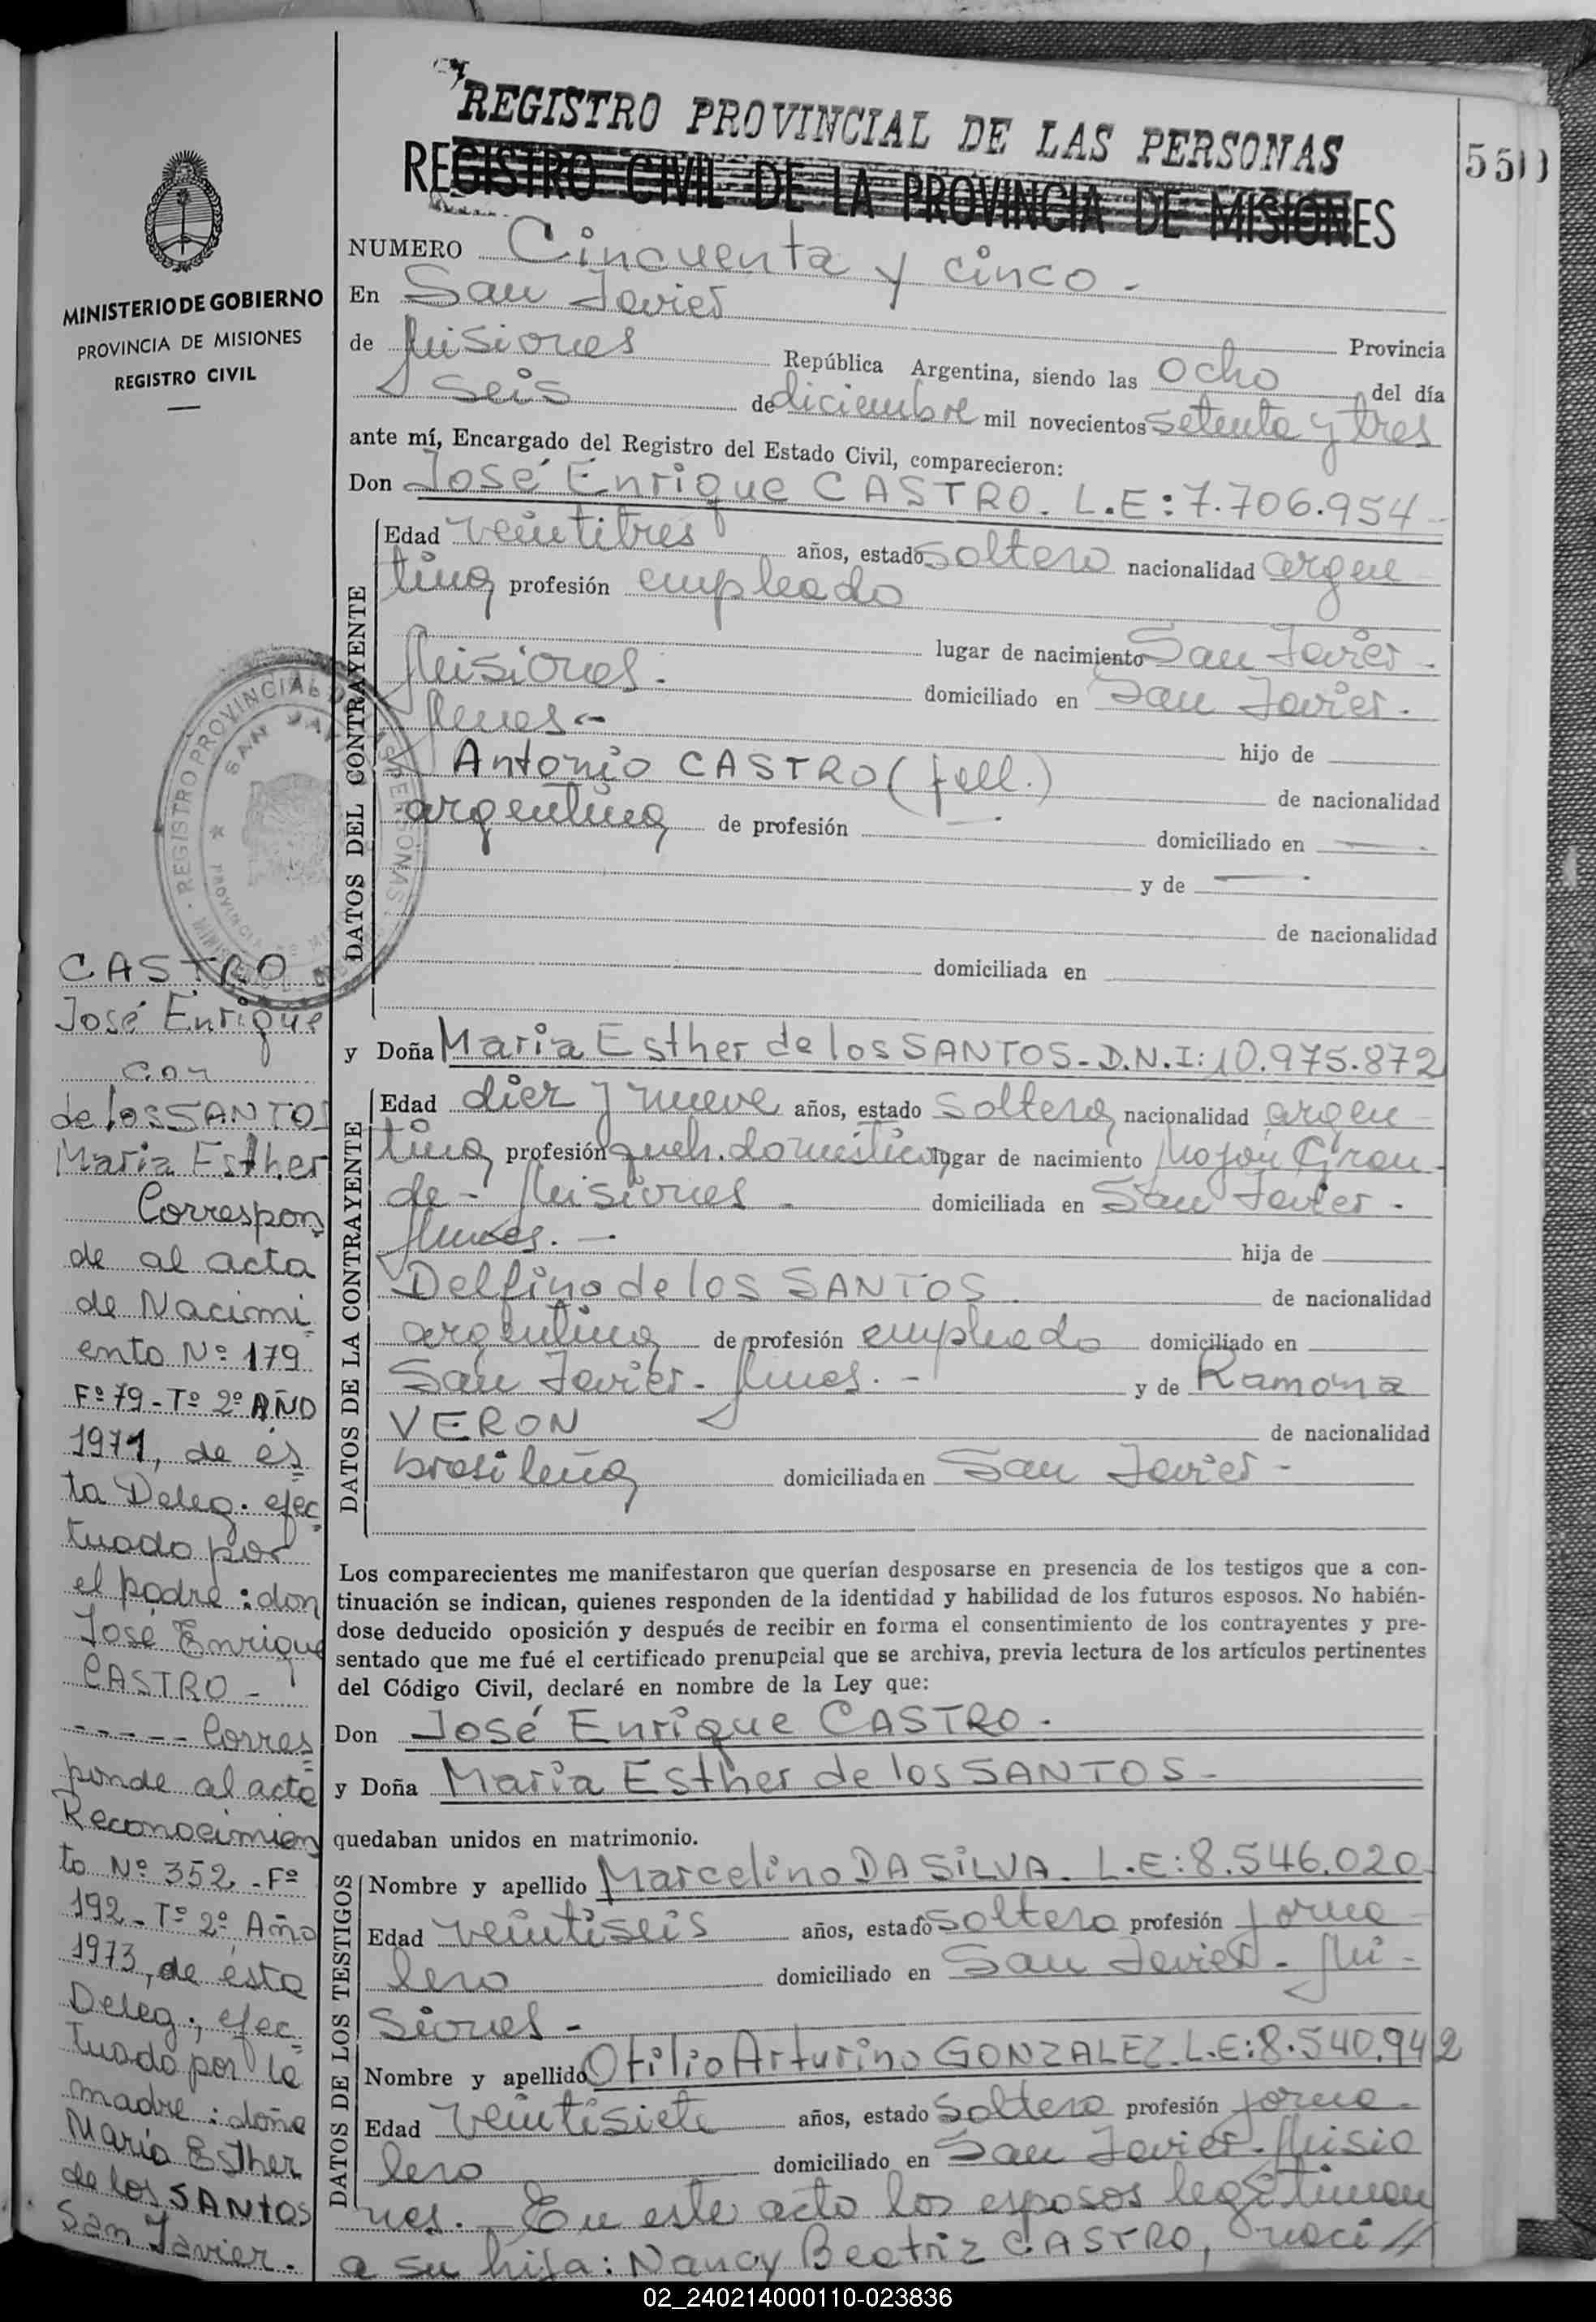 REGISTRO PROVINCIAL DE LAS PERSONAS
REGISTRO CIVIL DE LA PROVINCIA DE MISIONES
MINISTERIO DE GOBIERNO
PROVINCIA DE MISIONES
REGISTRO CIVIL
NUMERO Cincuenta y cinco -
En San Javier
Provincia
de Misiones República Argentina, siendo las ocho del día
seis de diciembre mil novecientos setenta y tres
ante mí, Encargado del Registro del Estado Civil, comparecieron:
Don José Enrique CASTRO. L.E: 7.706.954 -
DATOS DEL CONTRAYENTE
Edad veintitres años, estado soltero nacionalidad argen
tina profesión empleado
lugar de nacimiento San Javier -
Misiones. domiciliado en San Javier.
Mnes.- hijo de
Antonio CASTRO (fall.) de nacionalidad
argentina de profesión domiciliado en
y de
de nacionalidad
domiciliada en
y Doña Maria Esther de los SANTOS - D.N.I: 10.975.872
DATOS DE LA CONTRAYENTE
Edad diez y nueve años, estado soltera nacionalidad argen
tina profesión queh. domésticos lugar de nacimiento Mojón Gran-
de - Misiones - domiciliada en San Javier -
Mnes. - hija de
Delfino de los SANTOS de nacionalidad
argentina de profesión empleado domiciliado en
San Javier - Mnes. - y de Ramona
VERON de nacionalidad
brasileña domiciliada en San Javier -
Los comparecientes me manifestaron que querían desposarse en presencia de los testigos que a con-
tinuación se indican, quienes responden de la identidad y habilidad de los futuros esposos. No habién-
dose deducido oposición y después de recibir en forma el consentimiento de los contrayentes y pre-
sentado que me fué el certificado prenupcial que se archiva, previa lectura de los artículos pertinentes
del Código Civil, declaré en nombre de la Ley que:
Don José Enrique CASTRO -
y Doña Maria Esther de los SANTOS -
quedaban unidos en matrimonio.
DATOS DE LOS TESTIGOS
Nombre y apellido Marcelino DA SILVA. L.E: 8.546.020
Edad veintiseis años, estado soltero profesión jorna-
lero domiciliado en San Javier - Mi-
siones -
Nombre y apellido Otilio Arturino GONZALEZ. L.E: 8.540.942
Edad veintisiete años, estado soltero profesión jorna-
lero domiciliado en San Javier - Misio
nes. - En este acto los esposos legitiman
a su hija: Nancy Beatriz CASTRO, naci //
CASTRO
José Enrique
con
de los SANTOS
Maria Esther
Correspon
de al acta
de Nacimi
ento Nº 179
Fº 79 - Tº 2º AÑO
1971, de és
ta Deleg. efec
tuado por
el padre: don
José Enrique
CASTRO -
----- Corres
ponde al acta
Reconocimien
to Nº 352 - Fº
192 - Tº 2º Año
1973, de ésta
Deleg., efec
tuado por la
madre: doña
Maria Esther
de los SANTOS
San Javier.
02_240214000110-023836